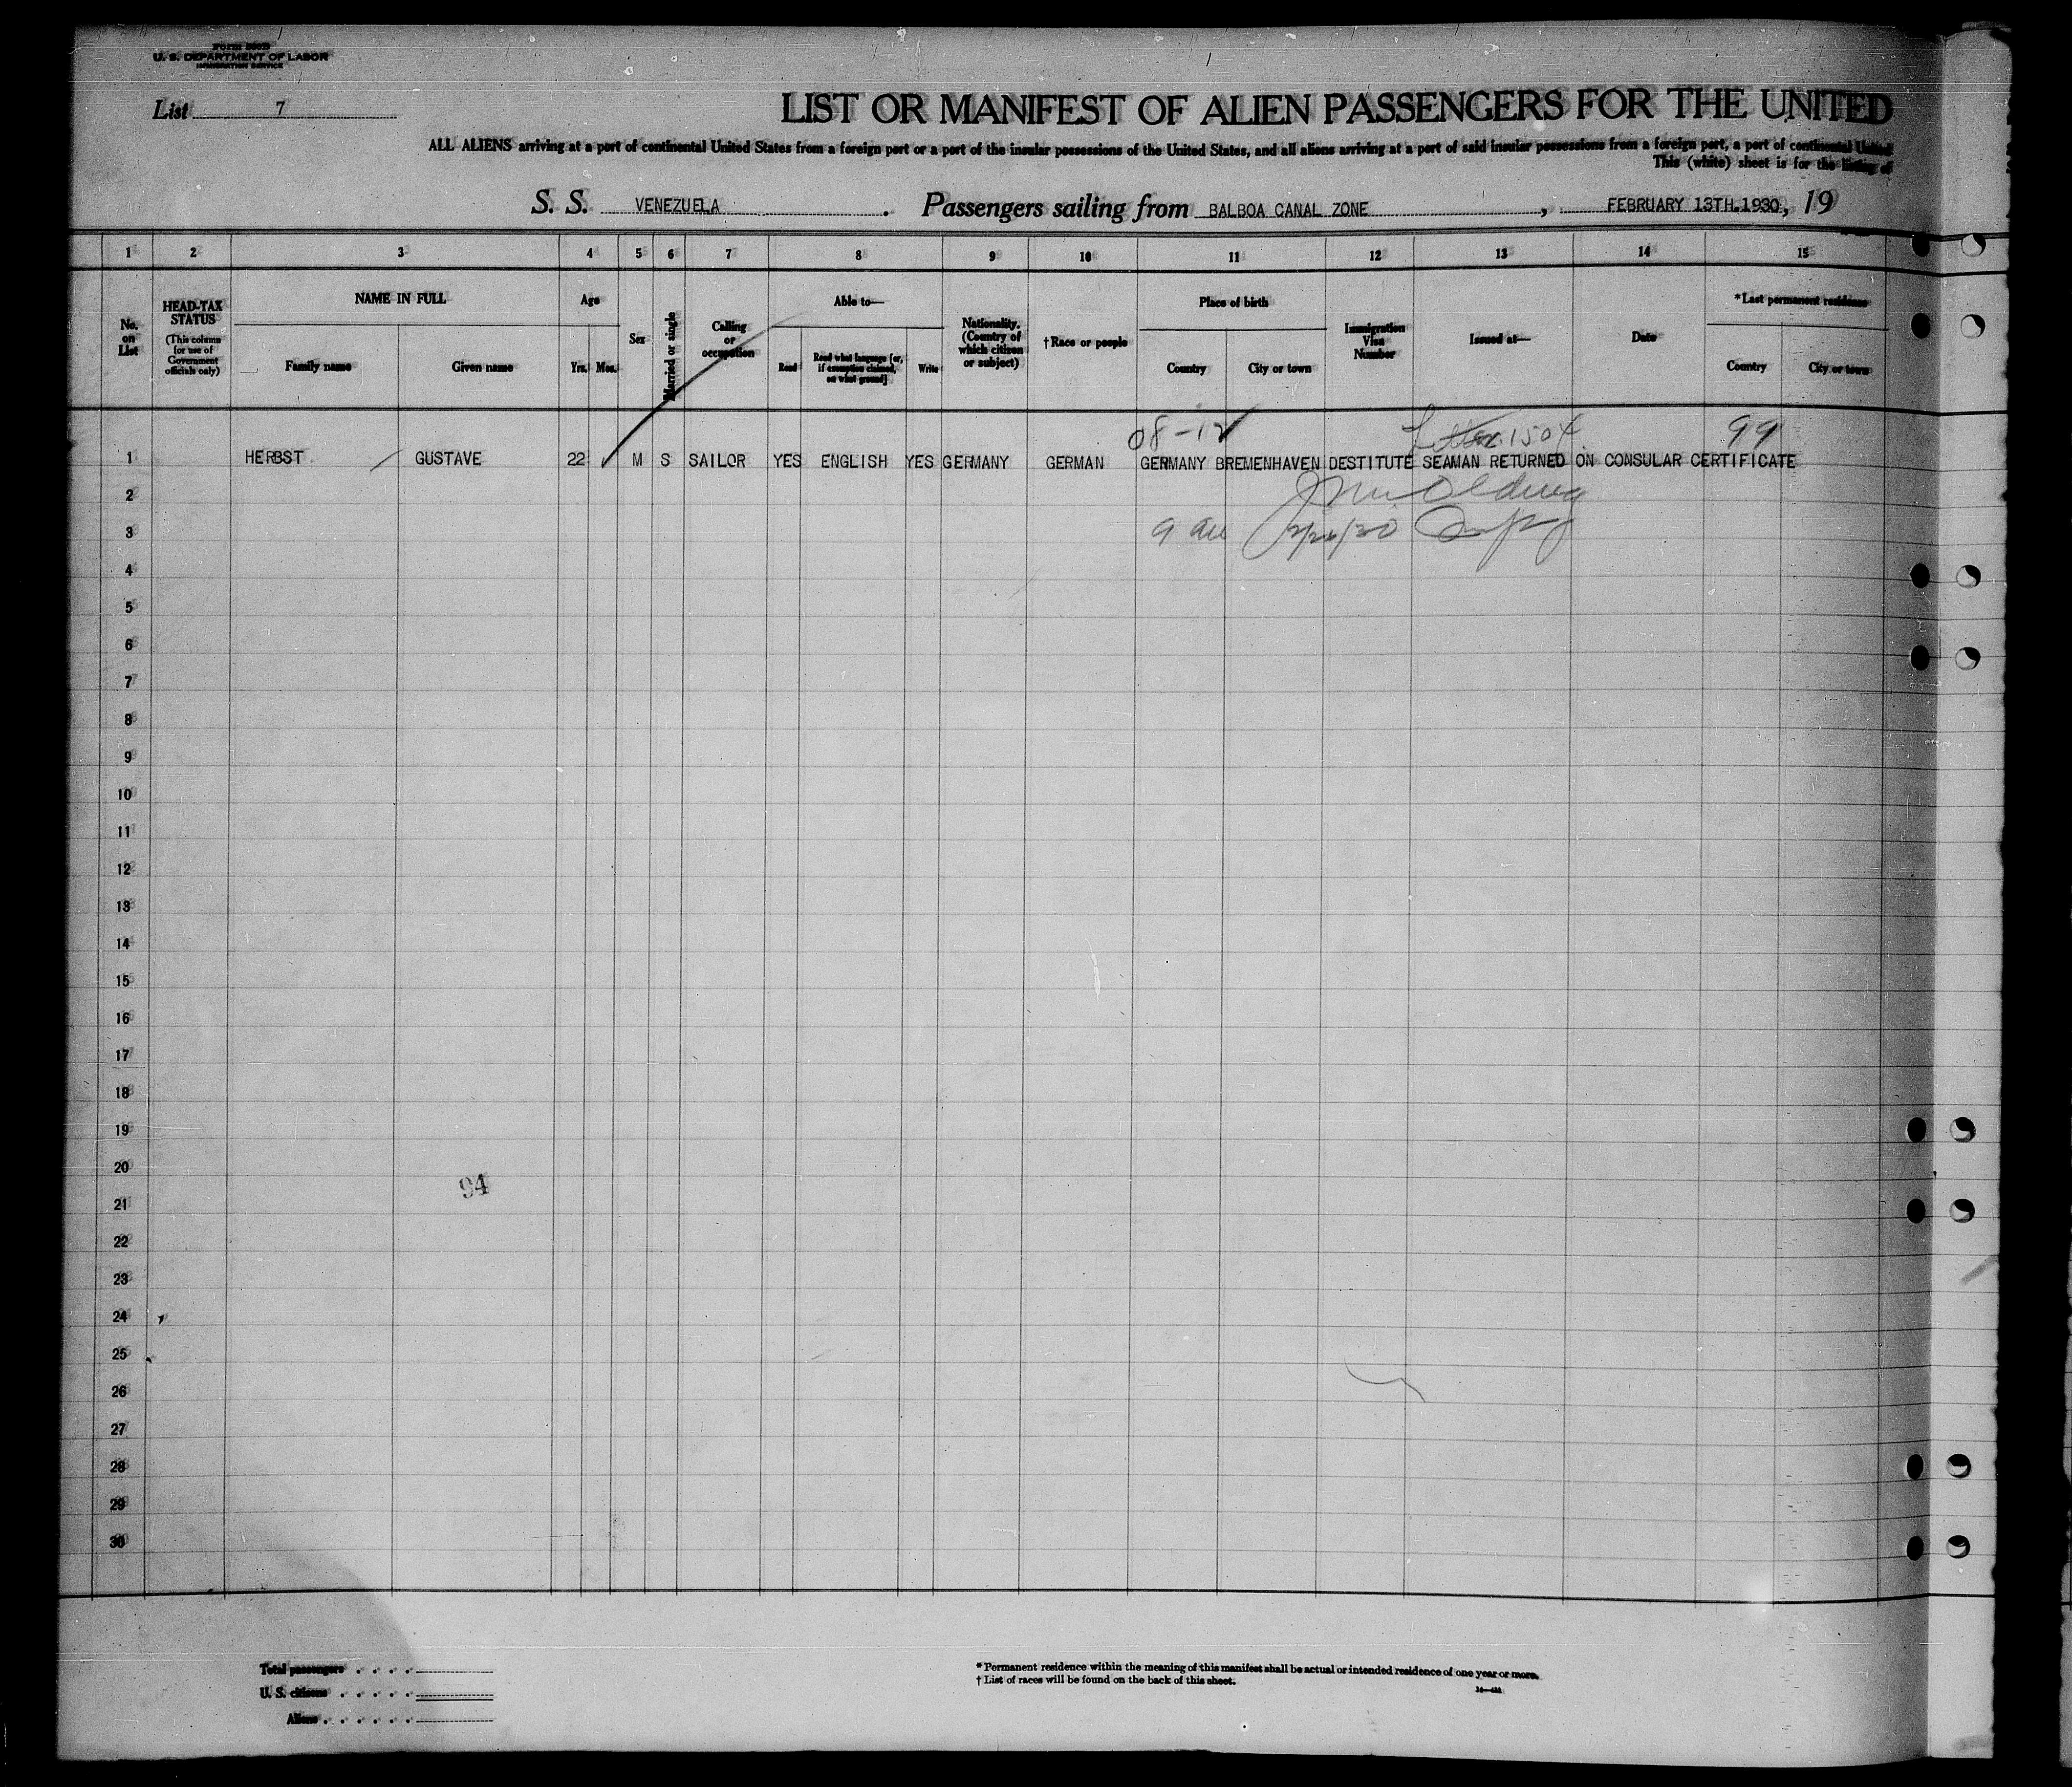 U. S. DEPARTMENT OF LABOR
IMMIGRATION SERVICE
List 7
LIST OR MANIFEST OF ALIEN PASSENGERS FOR THE UNITED
ALL ALIENS arriving at a port of continental United States from a foreign port or a port of the insular possessions of the United States, and all aliens arriving at a port of said insular possessions from a foreign port, a port of continental United
This (white) sheet is for the listing of
S. S. VENEZUELA. Passengers sailing from BALBOA CANAL ZONE, FEBRUARY 13TH.1930, 19
1 2 3 4 5 6 7 8 9 10 11 12 13 14 15
No. on List
HEAD-TAX STATUS (This column for use of Government officials only)
NAME IN FULL
Family name Given name
Age
Yrs. Mos.
Sex
Married or single
Calling or occupation
Able to—
Read Read what language [or, if exemption claimed, on what ground] Write
Nationality. (Country of which citizen or subject)
†Race or people
Place of birth
Country City or town
Immigration Visa Number
Issued at—
Date
*Last permanent residence
Country City or town
08-12 Letter 1504 99
1 HERBST GUSTAVE 22 M S SAILOR YES ENGLISH YES GERMANY GERMAN GERMANY BREMENHAVEN DESTITUTE SEAMAN RETURNED ON CONSULAR CERTIFICATE
2
3 2/26/30
4
5
6
7
8
9
10
11
12
13
14
15
16
17
18
19
20
94
21
22
23
24
25
26
27
28
29
30
Total passengers . . . .
U. S. citizens . . . . .
Aliens . . . . . .
* Permanent residence within the meaning of this manifest shall be actual or intended residence of one year or more.
† List of races will be found on the back of this sheet.